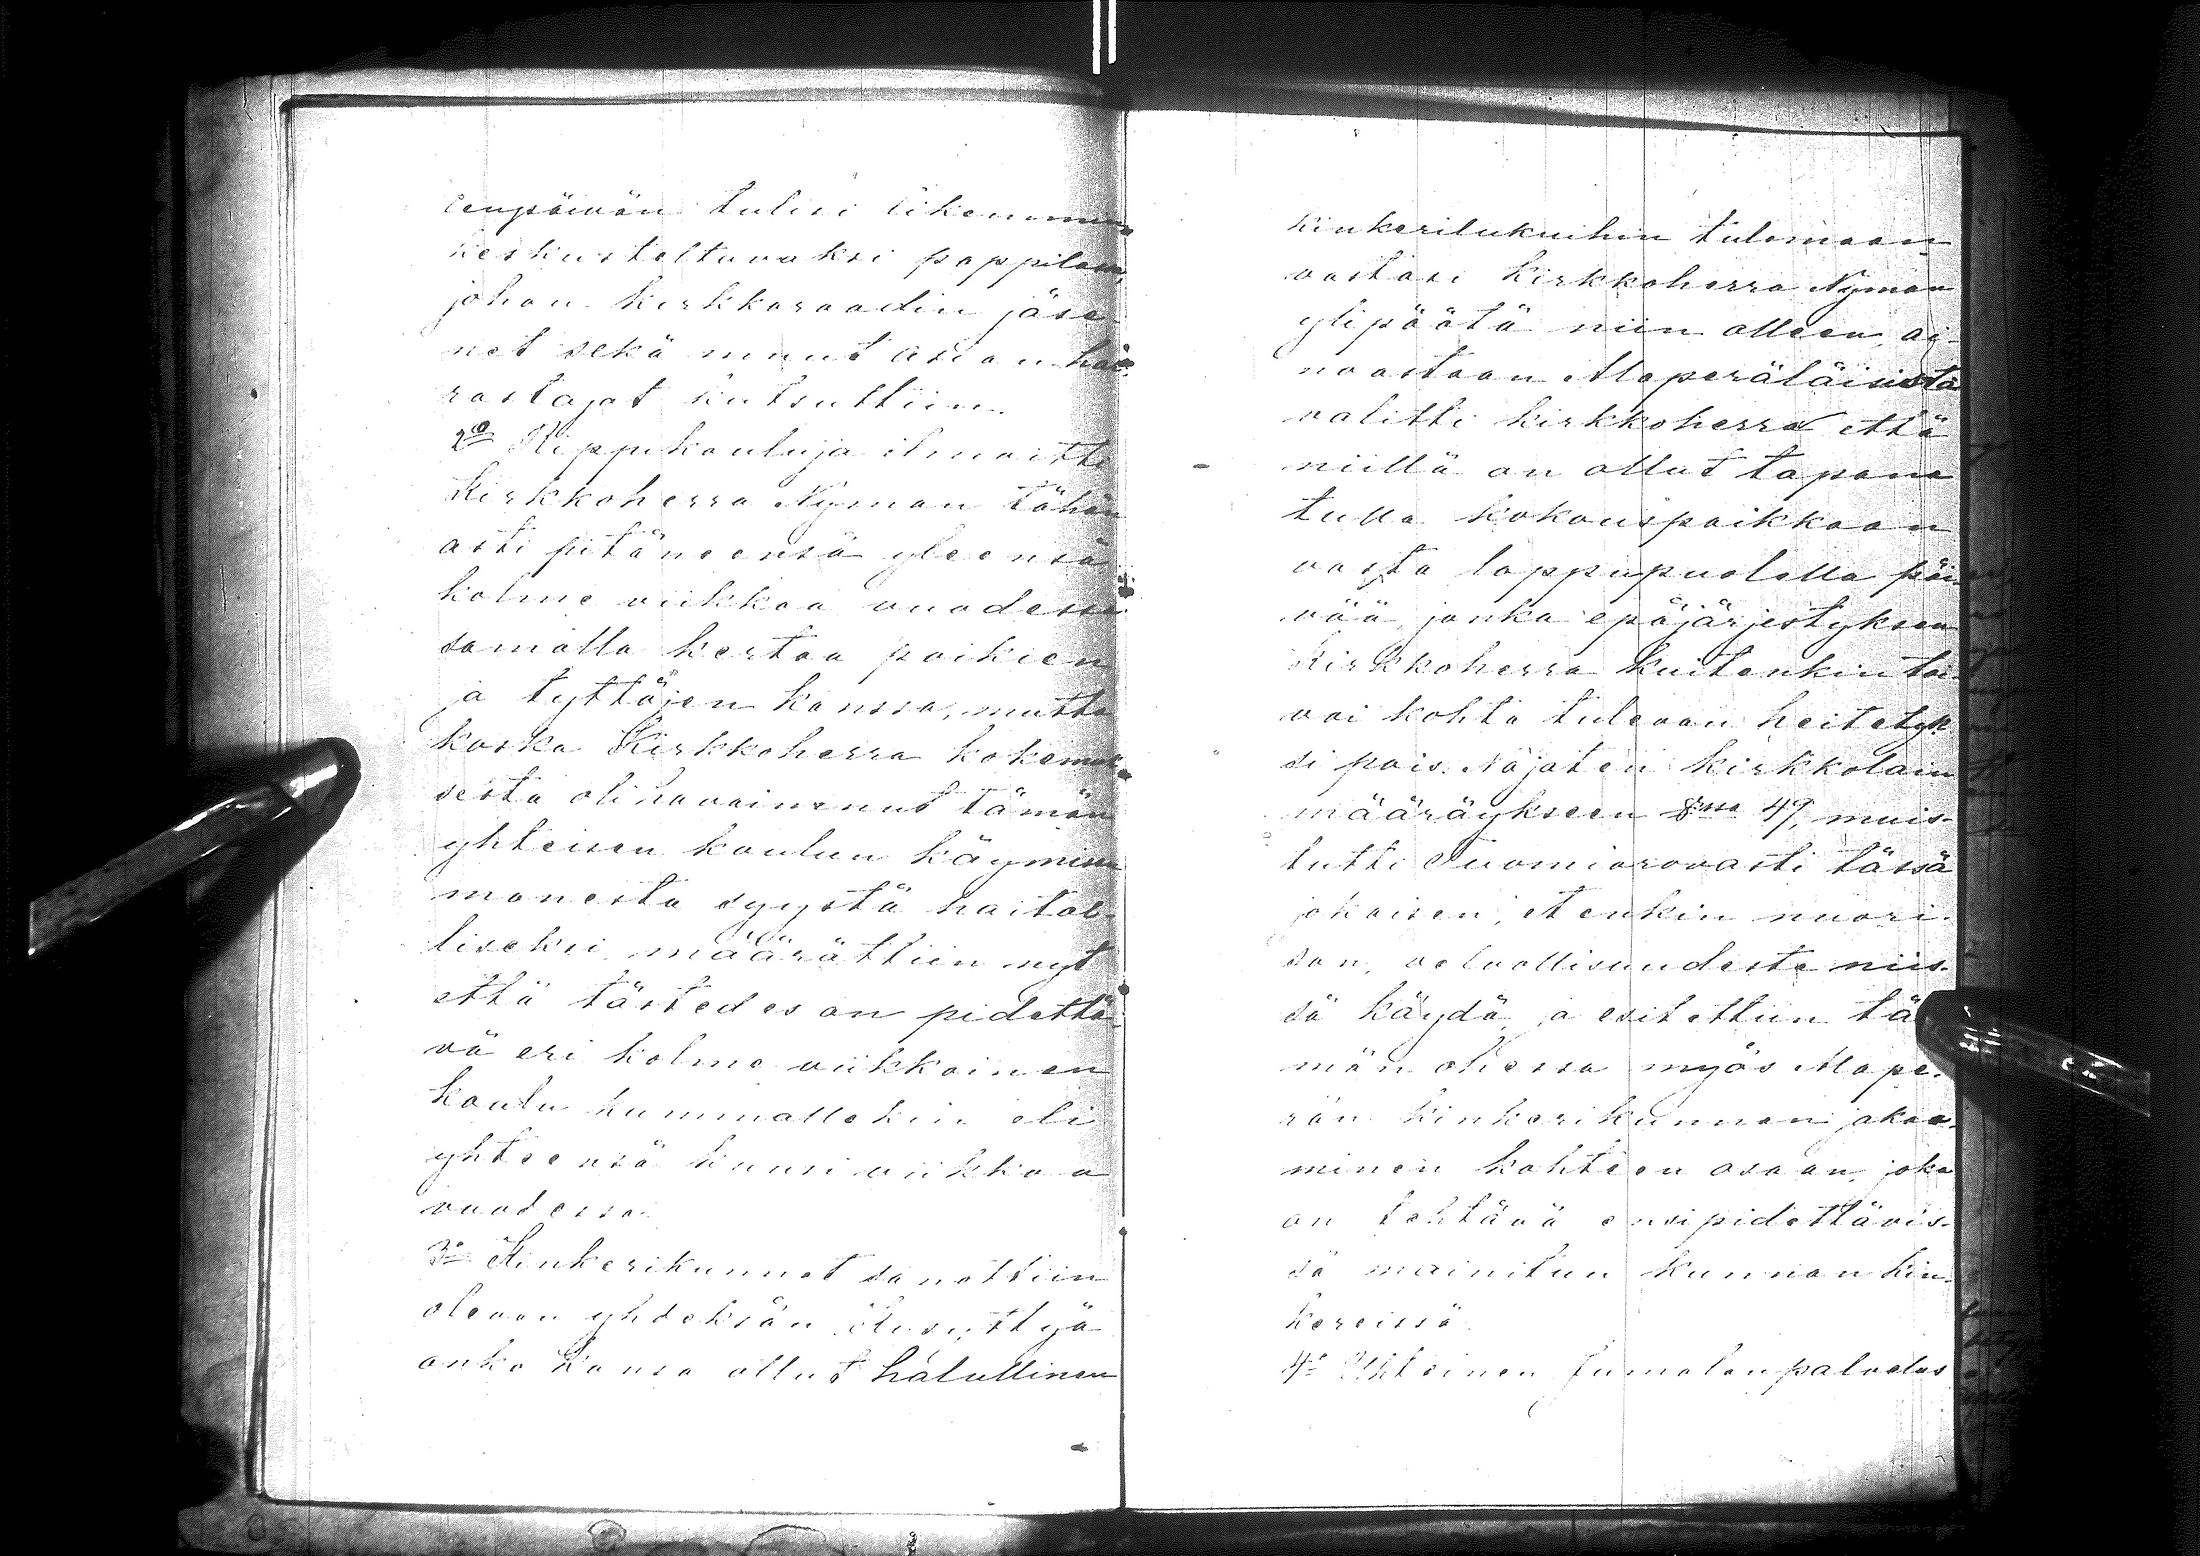 tenpäivän tulisi likemmin
keskusteltavaksi pappilaan,
johon kirkkoraadin jäse-
net sekä muut asian har-
rastajat kutsuttiin.
2:o Rippikouluja ilmoitti
Kirkkoherra Nyman tähän
asti pitäneensä yleensä
kolme viikkoa vuodessa
samalla kertaa poikien
ja tyttöjen kanssa, mutta
koska Kirkkoherra kokemuk-
sesta oli havainnut tämän
yhteisen koulun käymisen
monesta syystä haital-
liseksi, määrättiin nyt
että tästedes on pidettä-
vä eri kolme viikkoinen
koulu kummallekin eli
yhteensä kuusi viikkoa
vuodessa.
3:o Kinkerikunnat sanottiin
olevan yhdeksän.
onko kansa ollut halullinen
kinkerilukuihin tulemaan
vastasi Kirkkoherra Nyman
ylipäätä niin olleen, ai-
noastaan Maperäläisistä
valitti kirkkoherra että
niillä on ollut tapana
tulla kokouspaikkaan
vasta loppupuolella päi-
vää, jonka epäjärjestyksen
Kirkkoherra kuitenkin toi-
voi kohta tulevan heitetyk
si pois. Nojaten kirkkolain
määräykseen §:ssa 49, muis-
tutti Tuomiorovasti tässä
jokaisen, etenkin nuori-
son, velvollisuudesta niis-
sä käydä, ja esitettiin tä
män ohessa myös Mape-
rän kinkerikunnan jakaa-
minen kahteen osaan, joka
on tehtävä ensi pidettävis-
sä mainitun kunnan kin-
kereissä.
4:o Yhteinen Jumalanpalvelus